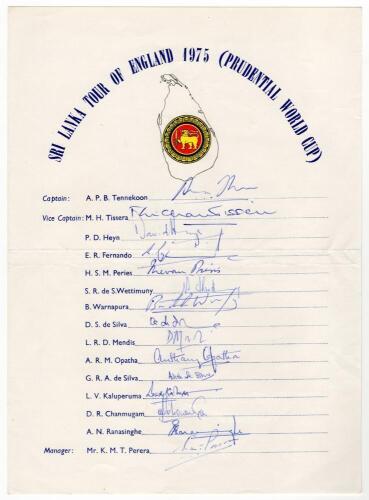 SRI LANKA TOUR OF ENGLAND 1975 (PRUDENTIAL WORLD CUP)
Captain: A. P. B. Tennekoon
Vice Captain: M. H. Tissera
P. D. Heyn
E. R. Fernando
H. S. M. Pieries
S. R. de S.Wettimuny
B. Warnapura
D. S. de Silva
L. R. D. Mendis
A. R. M. Opatha Anthony Opatha
G. R. A. de Silva
L. V. Kaluperuma
D. R. Chanmugam
A. N. Ranasinghe
Manager: Mr. K. M. T. Perera